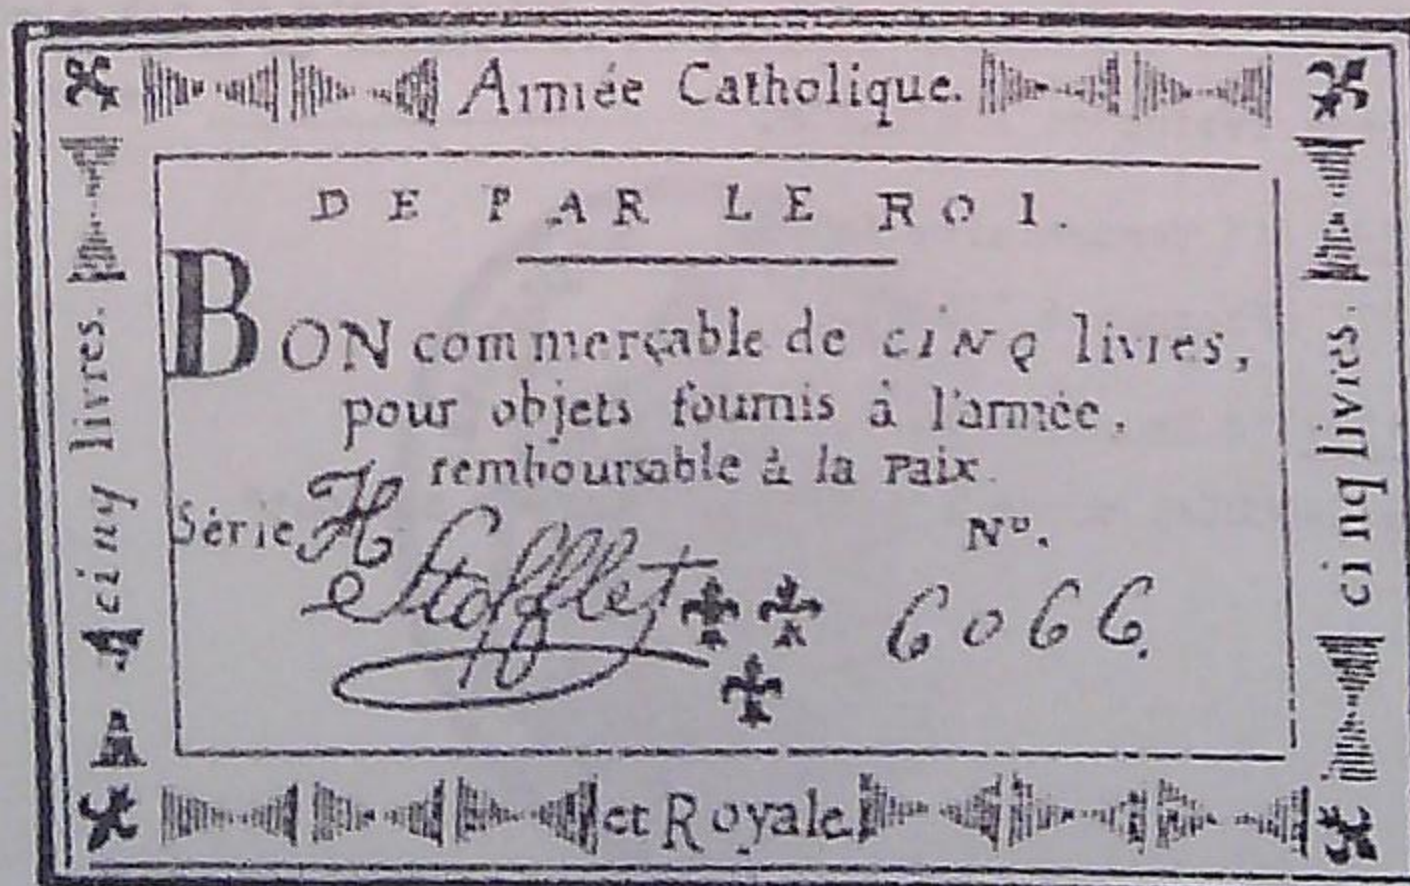 Armée Catholique.
DE PAR LE ROI.
BON commerçable de CINQ livres,
pour objets fournis à l'armée,
remboursable à la Paix.
Série H
Nº.
Stofflet
6066.
cinq livres.
cinq livres.
et Royale